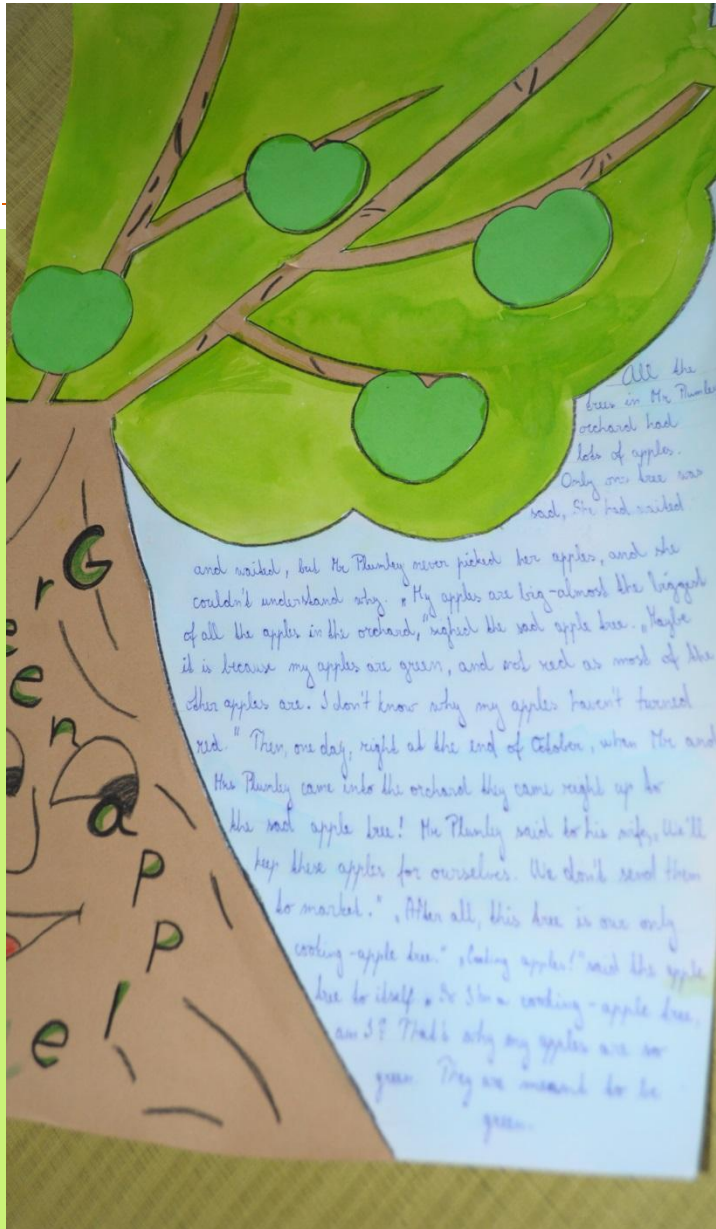 Green apple
All the
trees in Mr Plumley
orchard had
lots of apples.
Only one tree was
sad, She had waited
and waited, but Mr Plumley never picked her apples, and she
couldn't understand why. „My apples are big-almost the biggest
of all the apples in the orchard,” sighed the sad apple tree. „Maybe
it is because my apples are green, and not red as most of the
other apples are. I don't know why my apples haven't turned
red.” Then, one day, right at the end of October, when Mr and
Mrs Plumley came into the orchard they came right up to
the sad apple tree! Mr Plumley said to his wife, „We'll
keep these apples for ourselves. We don't send them
to market.” „After all, this tree is our only
cooking-apple tree.” „Cooking apples!” said the apple
tree to itself. „So I'm a cooking-apple tree,
am I? That's why my apples are so
green. They are meant to be
green.